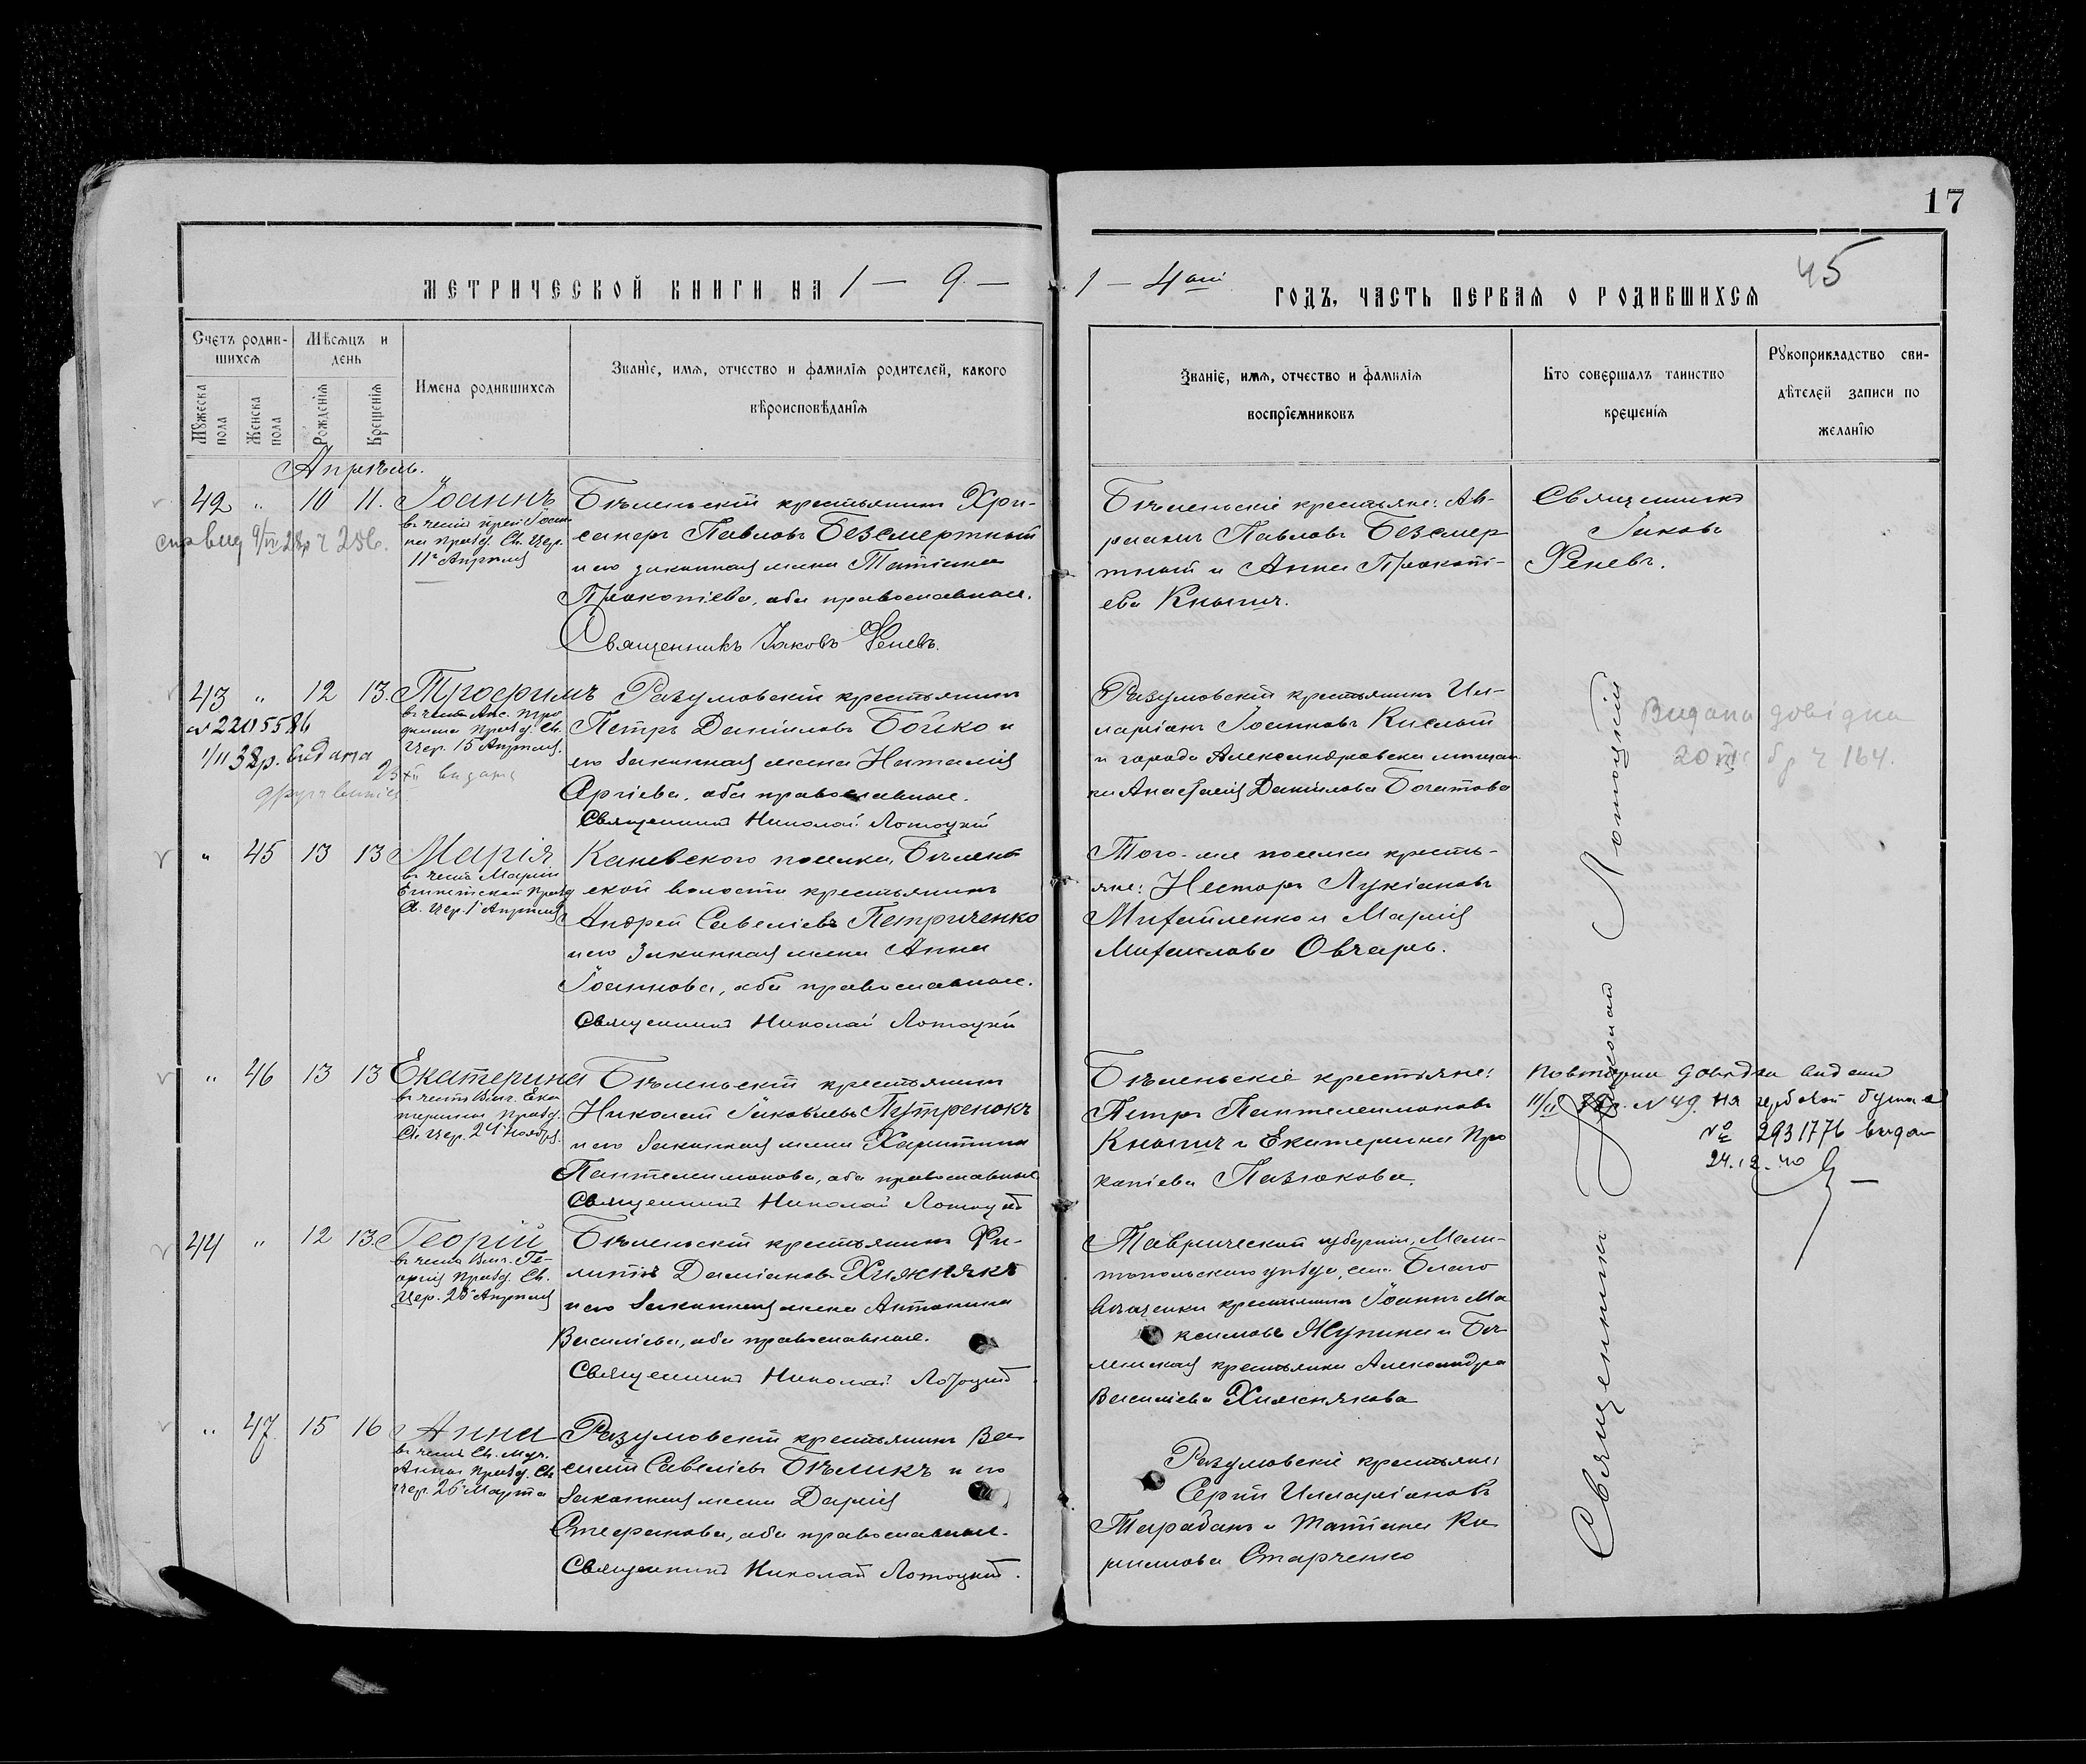 17
45
МЕТРИЧЕСКОЙ КНИГИ НА 1 — 9 —
1 — 4 ый ГОДЪ, ЧАСТЬ ПЕРВАЯ О РОДИВШИХСЯ
Счетъ родив-
шихся
Мужеска пола
Женска пола
Мѣсяцъ и
день
Рожденія
Крещенія
Имена родившихся
Званіе, имя, отчество и фамилія родителей, какого
вѣроисповѣданія
Званіе, имя, отчество и фамилія
воспріемниковъ
Кто совершалъ таинство
крещенія
Рукоприкладство сви-
дѣтелей записи по
желанію
Апрѣль.
42 " 10 11. Іоаннъ
в честь преп. Іоан-
на празд. Св. Цер.
11го Апрѣля
Бѣленьскій крестьянинъ Хри-
санѳъ Павловъ Безсмертный
и его законная жена Татіана
Прокопіева, оба православные.
Священникъ Іаковъ Феневъ.
Бѣленьскіе крестьяне: Ав-
раамъ Павловъ Безсмер
тный и Анна Прокопі-
ева Кнышъ.
Священникъ
Іаковъ
Феневъ.
43 " 12 13. Трофимъ
в честь Апс. Тро
фима празд. Св.
Цер. 15 Апрѣля.
№ 2205586
1/II 38р. видана
Разумовскій крестьянинъ
Петръ Даніиловъ Бойко и
его законная жена Наталія
Сергіева, оба православные.
Священникъ Николай Лотоцкій
Разумовскій крестьянинъ Ил-
ларіонъ Іоанновъ Кислый
и города Александровска мѣщан-
ка Анастасія Даніилова Богатова
Видана довідка
20 р ч 164.
" 45 13 13 Марія
в честь Маріи
Египетской празд
С. Цер. 1 Апрѣля
Каневского поселка, Бѣлень
ской волости крестьянинъ
Андрей Савеліевъ Петриченко
и его законная жена Анна
Іоаннова, оба православные.
Священникъ Николай Лотоцкій
Того-же поселка кресть-
яне: Несторъ Лукіановъ
Михайленко и Марія
Михаилова Овчаръ.
" 46 13 13 Екатерина
в честь Вмч. Ека
терины празд.
Св. Цер. 24 Ноября.
Бѣленьскій крестьянинъ
Николай Іаковлевъ Путренокъ
и его законная жена Харитина
Пантелеимонова, оба православные
Священникъ Николай Лотоцкій
Бѣленьскіе крестьяне:
Петръ Пантелеимоновъ
Кнышъ и Екатерина Про
копіева Павлюкова.
Повторна довідка видана
11/II 38р. № 49. На гербовой бумаге
№ 2931776 видан
24.12.40
44 " 12 13. Георгій
в честь Вмч. Ге-
оргія празд. Св.
Цер. 23 Апрѣля
Бѣленьскій крестьянинъ Фи-
липпъ Даміановъ Хижнякъ
и его законная жена Антонина
Василіева, оба православные.
Священникъ Николай Лотоцкій
Таврической губерніи, Мели-
топольского уѣзда, сел. Благо
вѣщенки крестьянинъ Іоаннъ Ма
ксимовъ Жупина и Бѣ-
ленская крестьянка Александра
Василіева Хижнякова
" 47 15 16 Анна
в честь Св. Муч.
Анны празд. Св.
Цер. 26 Марта
Разумовскій крестьянинъ Ва-
силій Савеліевъ Бѣликъ и его
законная жена Дарія
Стефанова, оба православные.
Священникъ Николай Лотоцкій.
Разумовскіе крестьяне:
Сергій Илларіоновъ
Тарабанъ и Татіана Ки
риллова Старченко
Священникъ Николай Лотоцкій